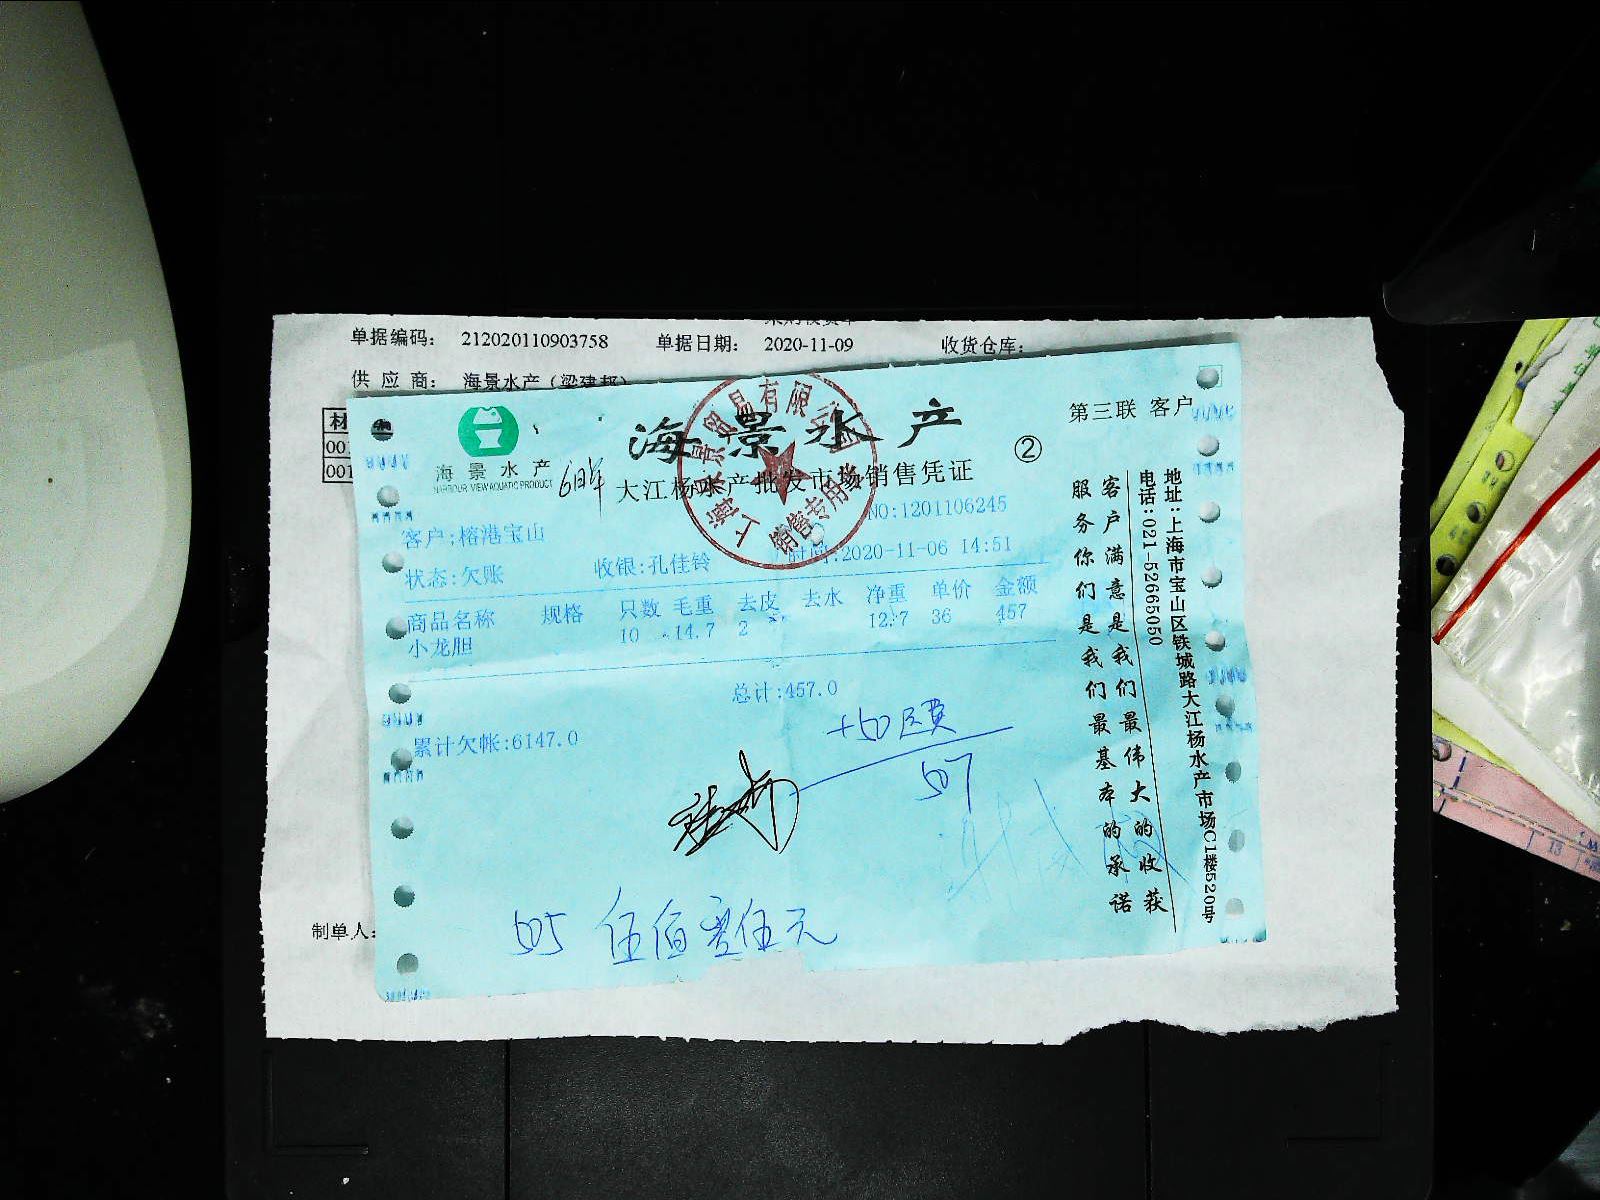 单据编码: 212020110903758 单据日期: 2020-11-09 收货仓库:
供 应 商: 海景水产（梁建邦）
材
001
001
第三联 客户
海景水产
②
海景水产
HARBOUR VIEW AQUATIC PRODUCT
大江杨水产批发市场销售凭证
景贸易有限公司
销售专用
NO:1201106245
客户:榕港宝山
状态:欠账 收银:孔佳铃 时间:2020-11-06 14:51
商品名称 规格 只数 毛重 去皮 去水 净重 单价 金额
小龙胆 10 14.7 2 12.7 36 457
总计:457.0
累计欠帐:6147.0
+50
507
505 伍佰零伍元
客户满意是我们最伟大的收获
服务你们是我们最基本的承诺
地址:上海市宝山区铁城路大江杨水产市场C1楼520号
电话:021-52665050
制单人:
13